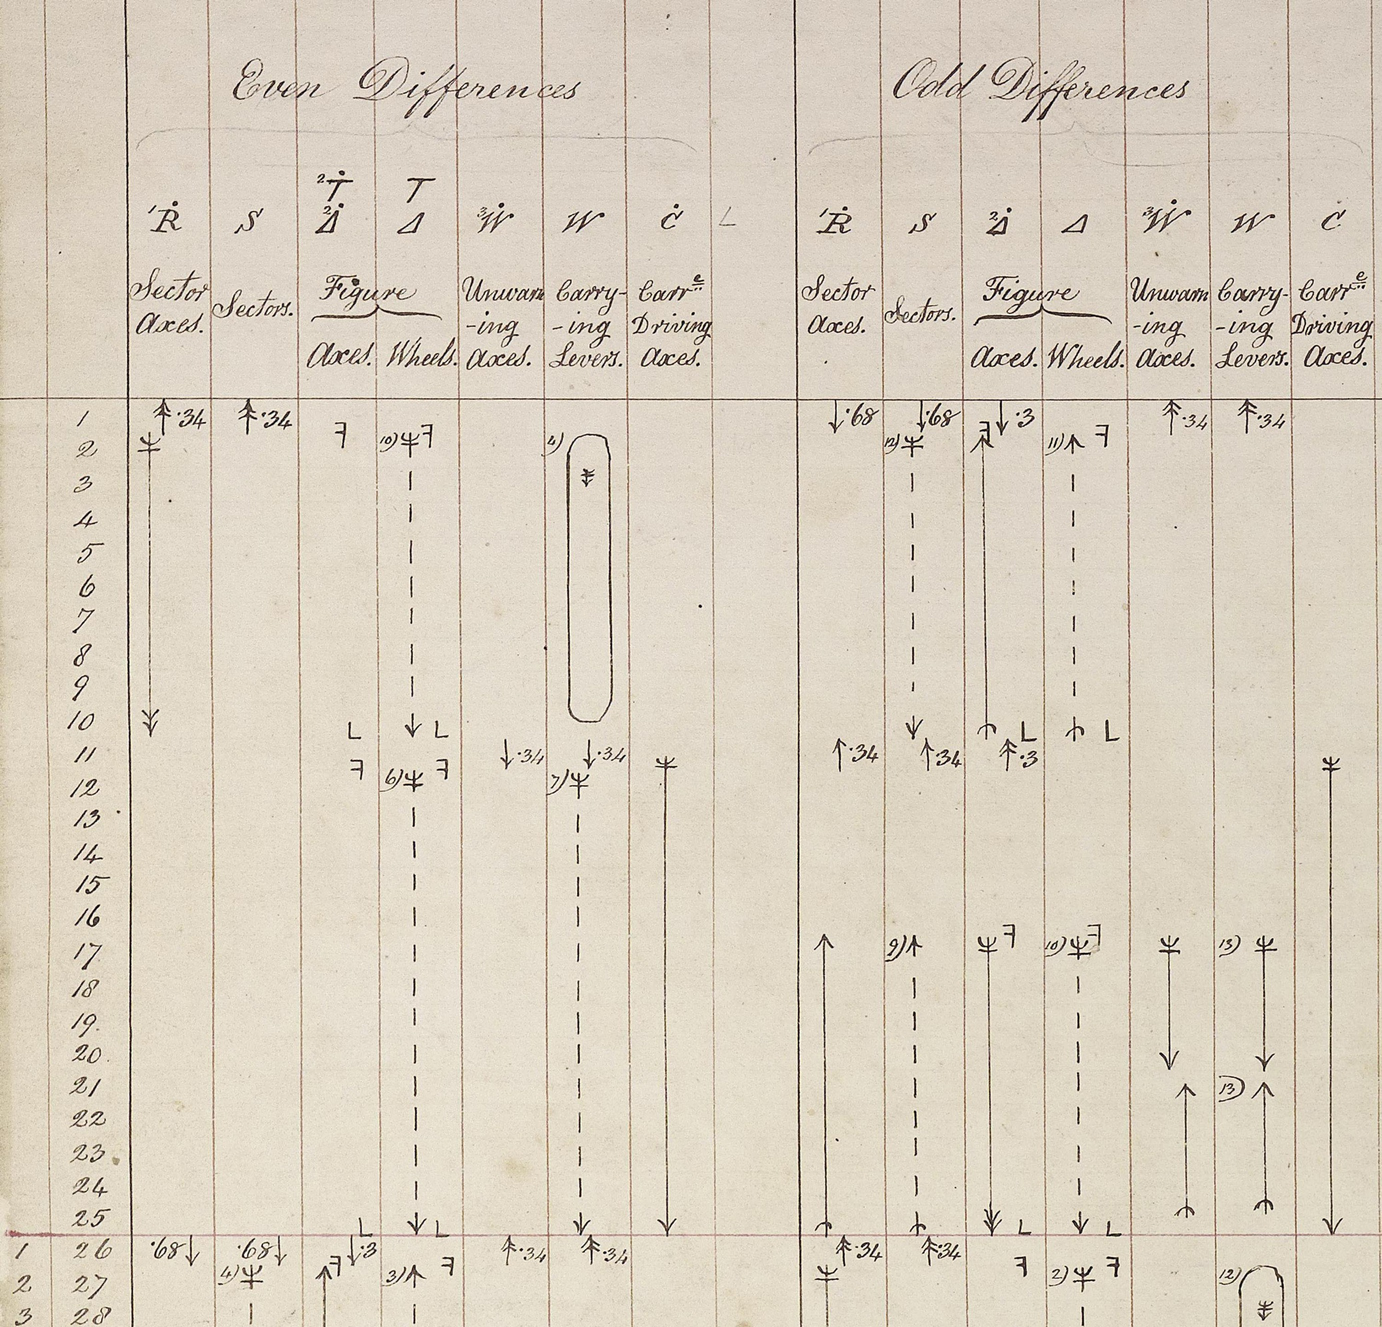 Even Differences Odd Differences
²Ṫ T
¹Ṙ S ²Δ̇ Δ ³Ẇ W Ċ L ¹Ṙ S ²Δ̇ Δ ³Ẇ W C
Sector Axes.
Sectors.
Figure
Axes. Wheels.
Unwarn
-ing
Axes.
Carry-
-ing
Levers.
Carrᵍᵉ
Driving
Axes.
Sector
Axes.
Sectors.
Figure
Axes. Wheels.
Unwarn
-ing
Axes.
Carry-
-ing
Levers.
Driving
Axes.
1 ·34 ·34 ·68 ·68 ·3 ·34 ·34
2 10) 4) 12) 11)
3
4
5
6
7
8
9
10 L L L L
11 ·34 ·34 ·34 ·34 ·3
12 6) 7)
13
14
15
16
17 9) 10) 13) 13)
18
19
20
21 13)
22
23
24
25 L L L L
1 26 ·68 ·68 ·3 ·34 ·34 ·34 ·34
2 27 4) 3) 2) 12)
3 28